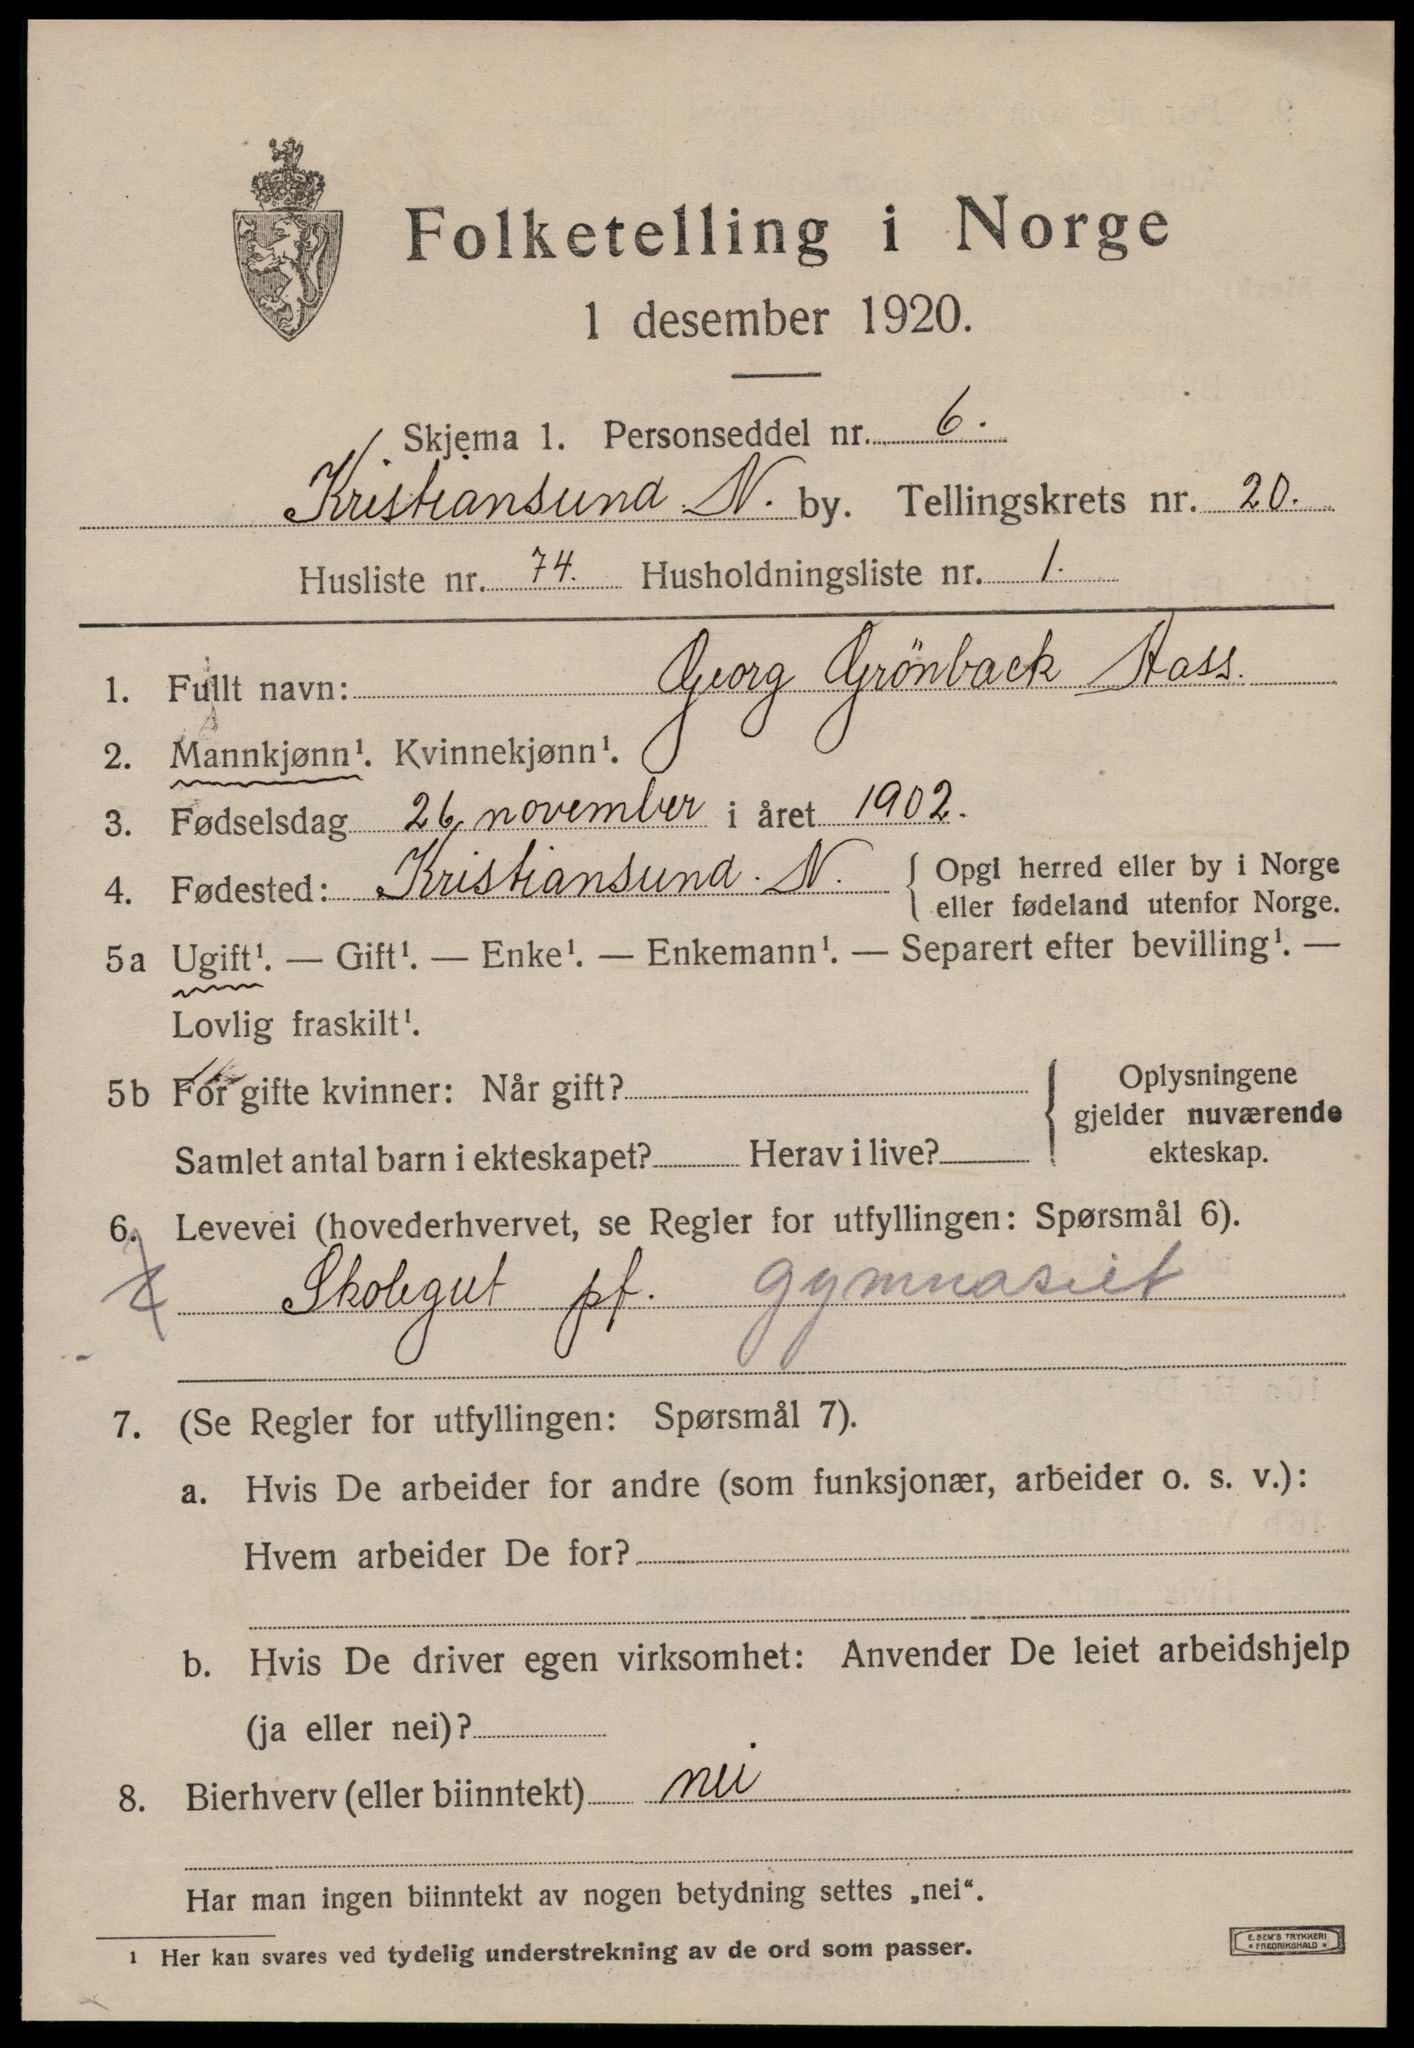 Folketelling i Norge
1 desember 1920.
Skjema 1. Personseddel nr. 6.
Kristiansund N. by. Tellingskrets nr. 20.
Husliste nr. 74. Husholdningsliste nr. 1.
1. Fullt navn: Georg Grönbaek
2. Mannkjønn¹. Kvinnekjønn¹.
3. Fødselsdag 26 november i året 1902.
4. Fødested: Kristiansund. N. { Opgi herred eller by i Norge
eller fødeland utenfor Norge.
5a Ugift¹. — Gift¹. — Enke¹. — Enkemann¹. — Separert efter bevilling¹. —
Lovlig fraskilt¹.
5b For gifte kvinner: Når gift?
Samlet antal barn i ekteskapet? Herav i live?
{ Oplysningene
gjelder nuværende
ekteskap.
6. Levevei (hovederhvervet, se Regler for utfyllingen: Spørsmål 6).
Skolegut pf. gymnasiet
7. (Se Regler for utfyllingen: Spørsmål 7).
a. Hvis De arbeider for andre (som funksjonær, arbeider o. s. v.):
Hvem arbeider De for?
b. Hvis De driver egen virksomhet: Anvender De leiet arbeidshjelp
(ja eller nei)?
8. Bierhverv (eller biinntekt) nei
Har man ingen biinntekt av nogen betydning settes „nei“.
¹ Her kan svares ved tydelig understrekning av de ord som passer.
E. SEM'S TRYKKERI
• FREDRIKSHALD •